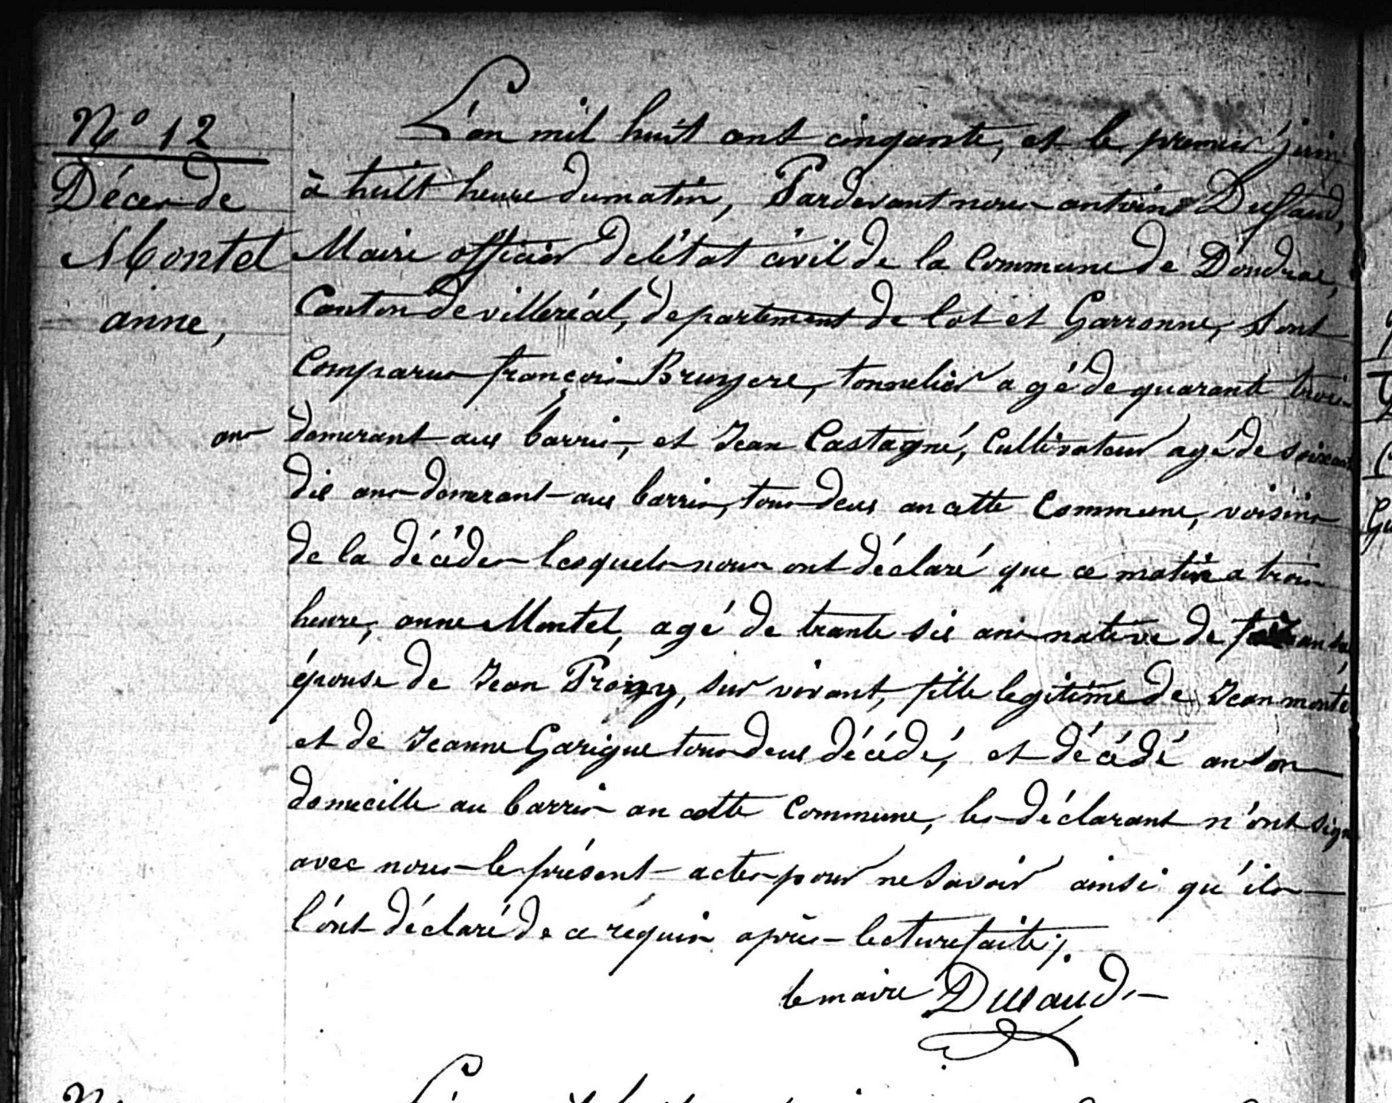 N° 12
Décès de
Montel
anne,
L'an mil huit cent cinqante, et le premier juin
à huit heure du matin, Pardevant nous antoine Dussaud,
Maire officier de l'état civil de la Commune de Doudrac,
Canton de villeréal, département de lot et Garronne, sont
Comparus françois Bruyere, tonnelier agé de quarante trois
ans demerant aus barris, et Jean Castagné, Cultivateur agé de soixante
dis ans demerant aus barris, tous deus an cette Commune, voisins
de la décédés lesquels nous ont déclaré que ce matin a trois
heure, anne Montel, agé de trante sis ans native de
épouse de Jean survivant, fille legitime de Jean montel
et de Jeanne Garigue tous deus décédé, et décédé an son
domicille au barris an cette Commune, les déclarant n'ont signé
avec nous le présent actes pour ne savoir ainsi qu'ils
l'ont déclaré de ce réquis après lecture faite;.
le maire Dussaud